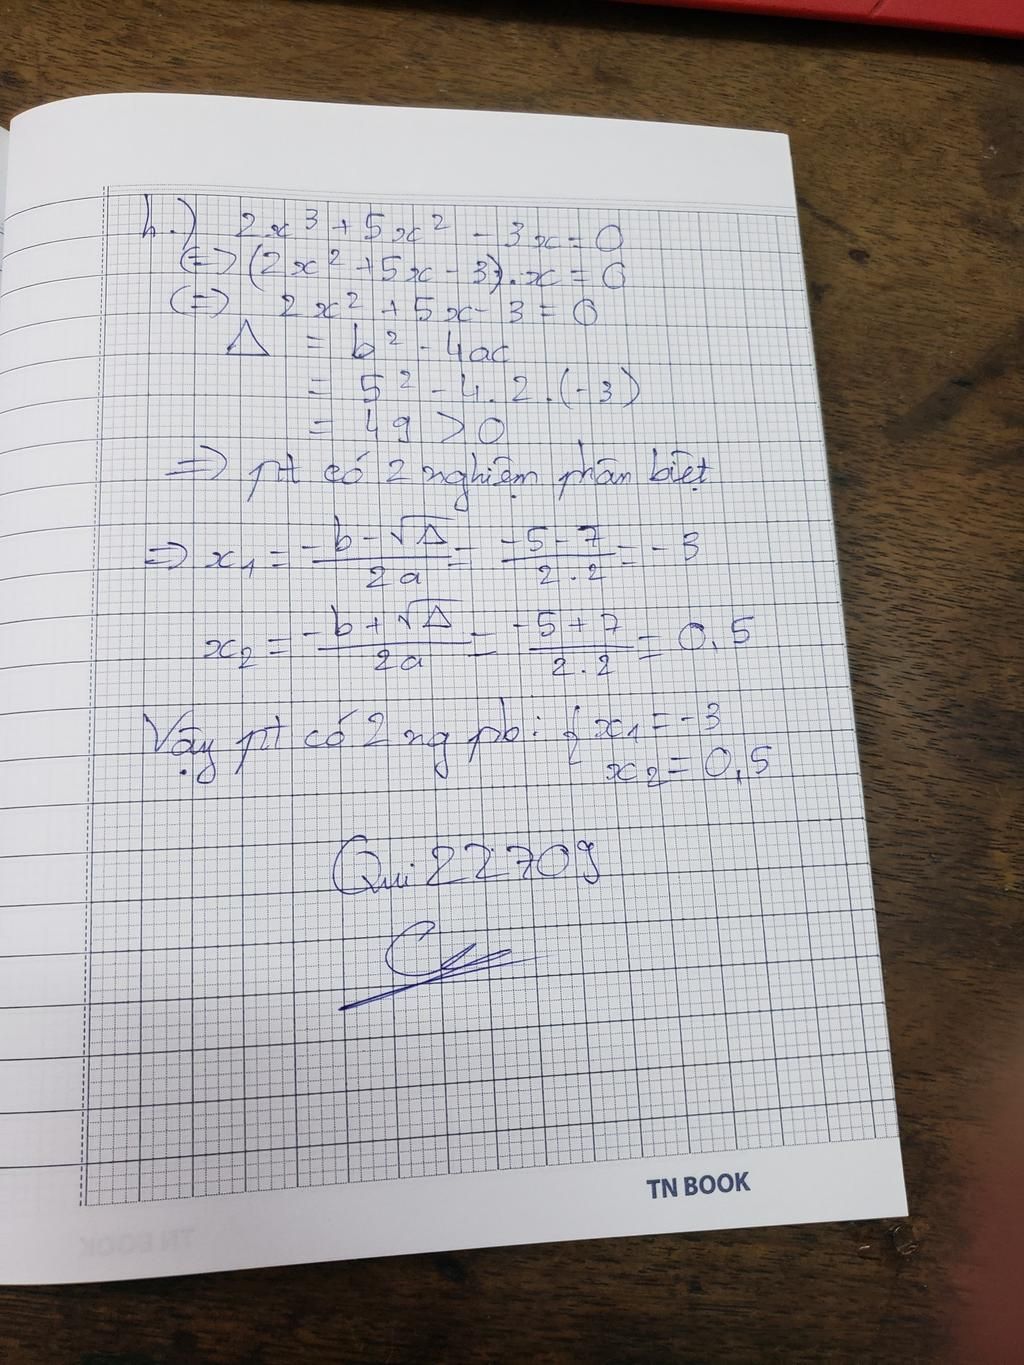 h.) 2x³ + 5x² - 3x = 0
(=>) (2x² + 5x - 3).x = 0
(=>) 2x² + 5x - 3 = 0
Δ = b² - 4ac
= 5² - 4.2.(-3)
= 49 > 0
=> pt có 2 nghiệm phân biệt
=> x₁ = (-b - √Δ)/(2a) = (-5 - 7)/(2.2) = -3
x₂ = (-b + √Δ)/(2a) = (-5 + 7)/(2.2) = 0,5
Vậy pt có 2 ng pb: { x₁ = -3
x₂ = 0,5
Qui 22709
TN BOOK